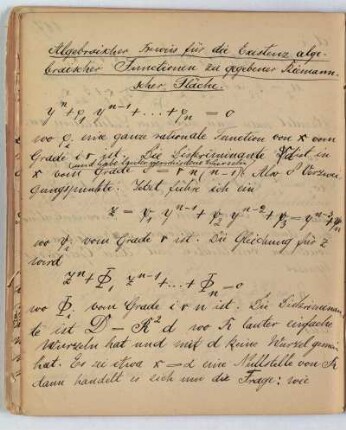 Algebraischer Beweis für die Existenz alge-
braischer Functionen zu gegebener Riemann-
scher Fläche.
y^n + φ_1 y^{n-1} + ... + φ_n = 0
wo φ_i eine ganze rationale Function von x vom
Grade i r ist. Die Diskriminante d ist in
und habe lauter verschiedene Wurzeln
x vom Grade = r n (n-1). Also Verzwei-
gungspunkte. Jetzt führe ich ein
z = ψ_1 y^{n-1} + ψ_2 y^{n-2} + ψ_3 y^{n-3}
wo ψ_i vom Grade r ist. Die Gleichung für z
wird
z^n + Φ_1 z^{n-1} + ... + Φ_n = 0
wo Φ_i vom Grade i r n ist. Die Diskriminan-
te ist D = R^2 d wo R lauter einfache
Wurzeln hat und mit d keine Wurzel gemein
hat. Es sei etwa x = α eine Nullstelle von R
dann handelt es sich um die Frage: wie